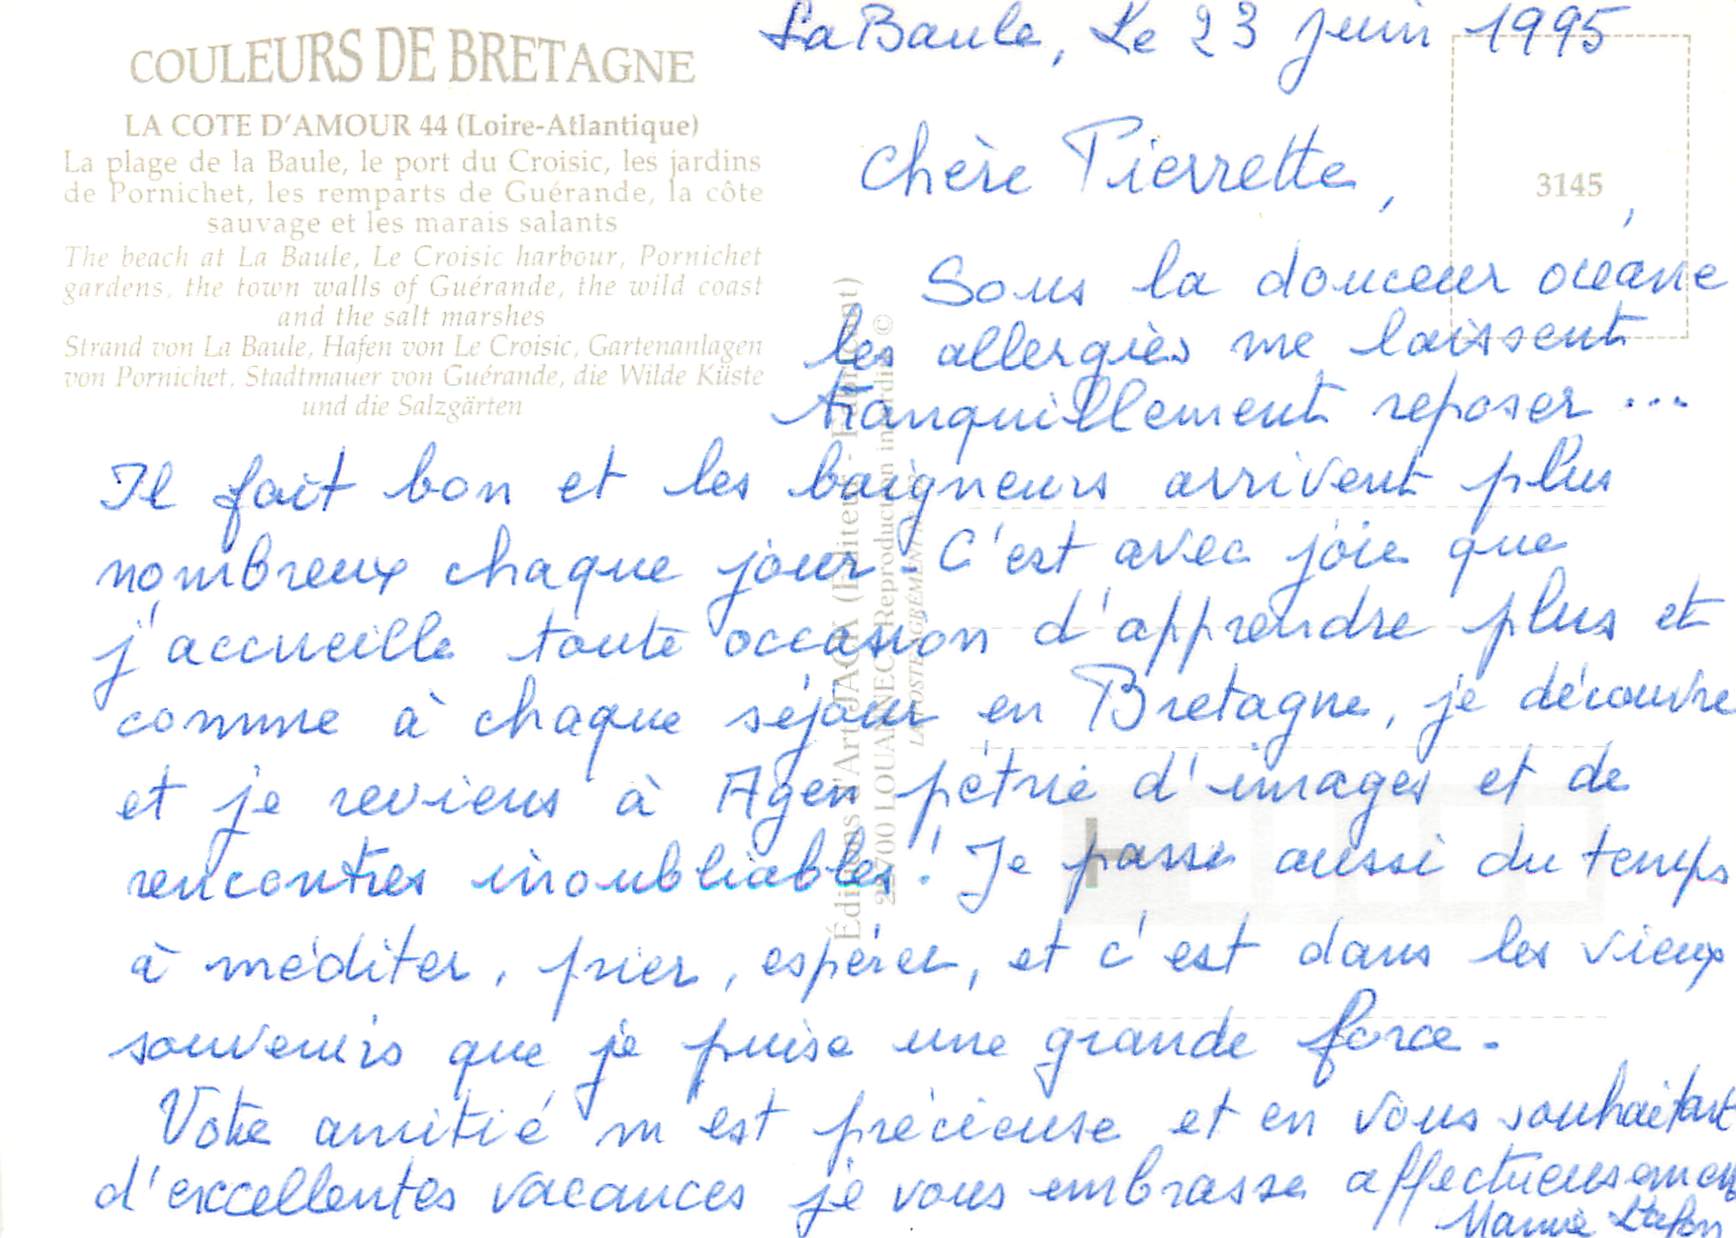 COULEURS DE BRETAGNE
LA COTE D'AMOUR 44 (Loire-Atlantique)
La plage de la Baule, le port du Croisic, les jardins
de Pornichet, les remparts de Guérande, la côte
sauvage et les marais salants
The beach at La Baule, Le Croisic harbour, Pornichet
gardens, the town walls of Guérande, the wild coast
and the salt marshes
Strand von La Baule, Hafen von Le Croisic, Gartenanlagen
von Pornichet, Stadtmauer von Guérande, die Wilde Küste
und die Salzgärten
La Baule, Le 23 Juin 1995
3145
Chère Pierrette,
Sous la douceur océane
les allergies me laissent
tranquillement reposer ...
Il fait bon et les baigneurs arrivent plus
nombreux chaque jour. C'est avec joie que
j'accueille toute occasion d'apprendre plus et
comme à chaque séjour en Bretagne, je découvre
et je reviens à Agen pétrie d'images et de
rencontres inoubliables ! Je passe aussi du temps
à méditer, prier, espérer, et c'est dans les vieux
souvenirs que je puise une grande force.
Votre amitié m'est précieuse et en vous souhaitant
d'excellentes vacances je vous embrasse affectueusement
Éditions d'Art JACK (Éditeur-
22700 LOUANNEC Reproduction interdite ©